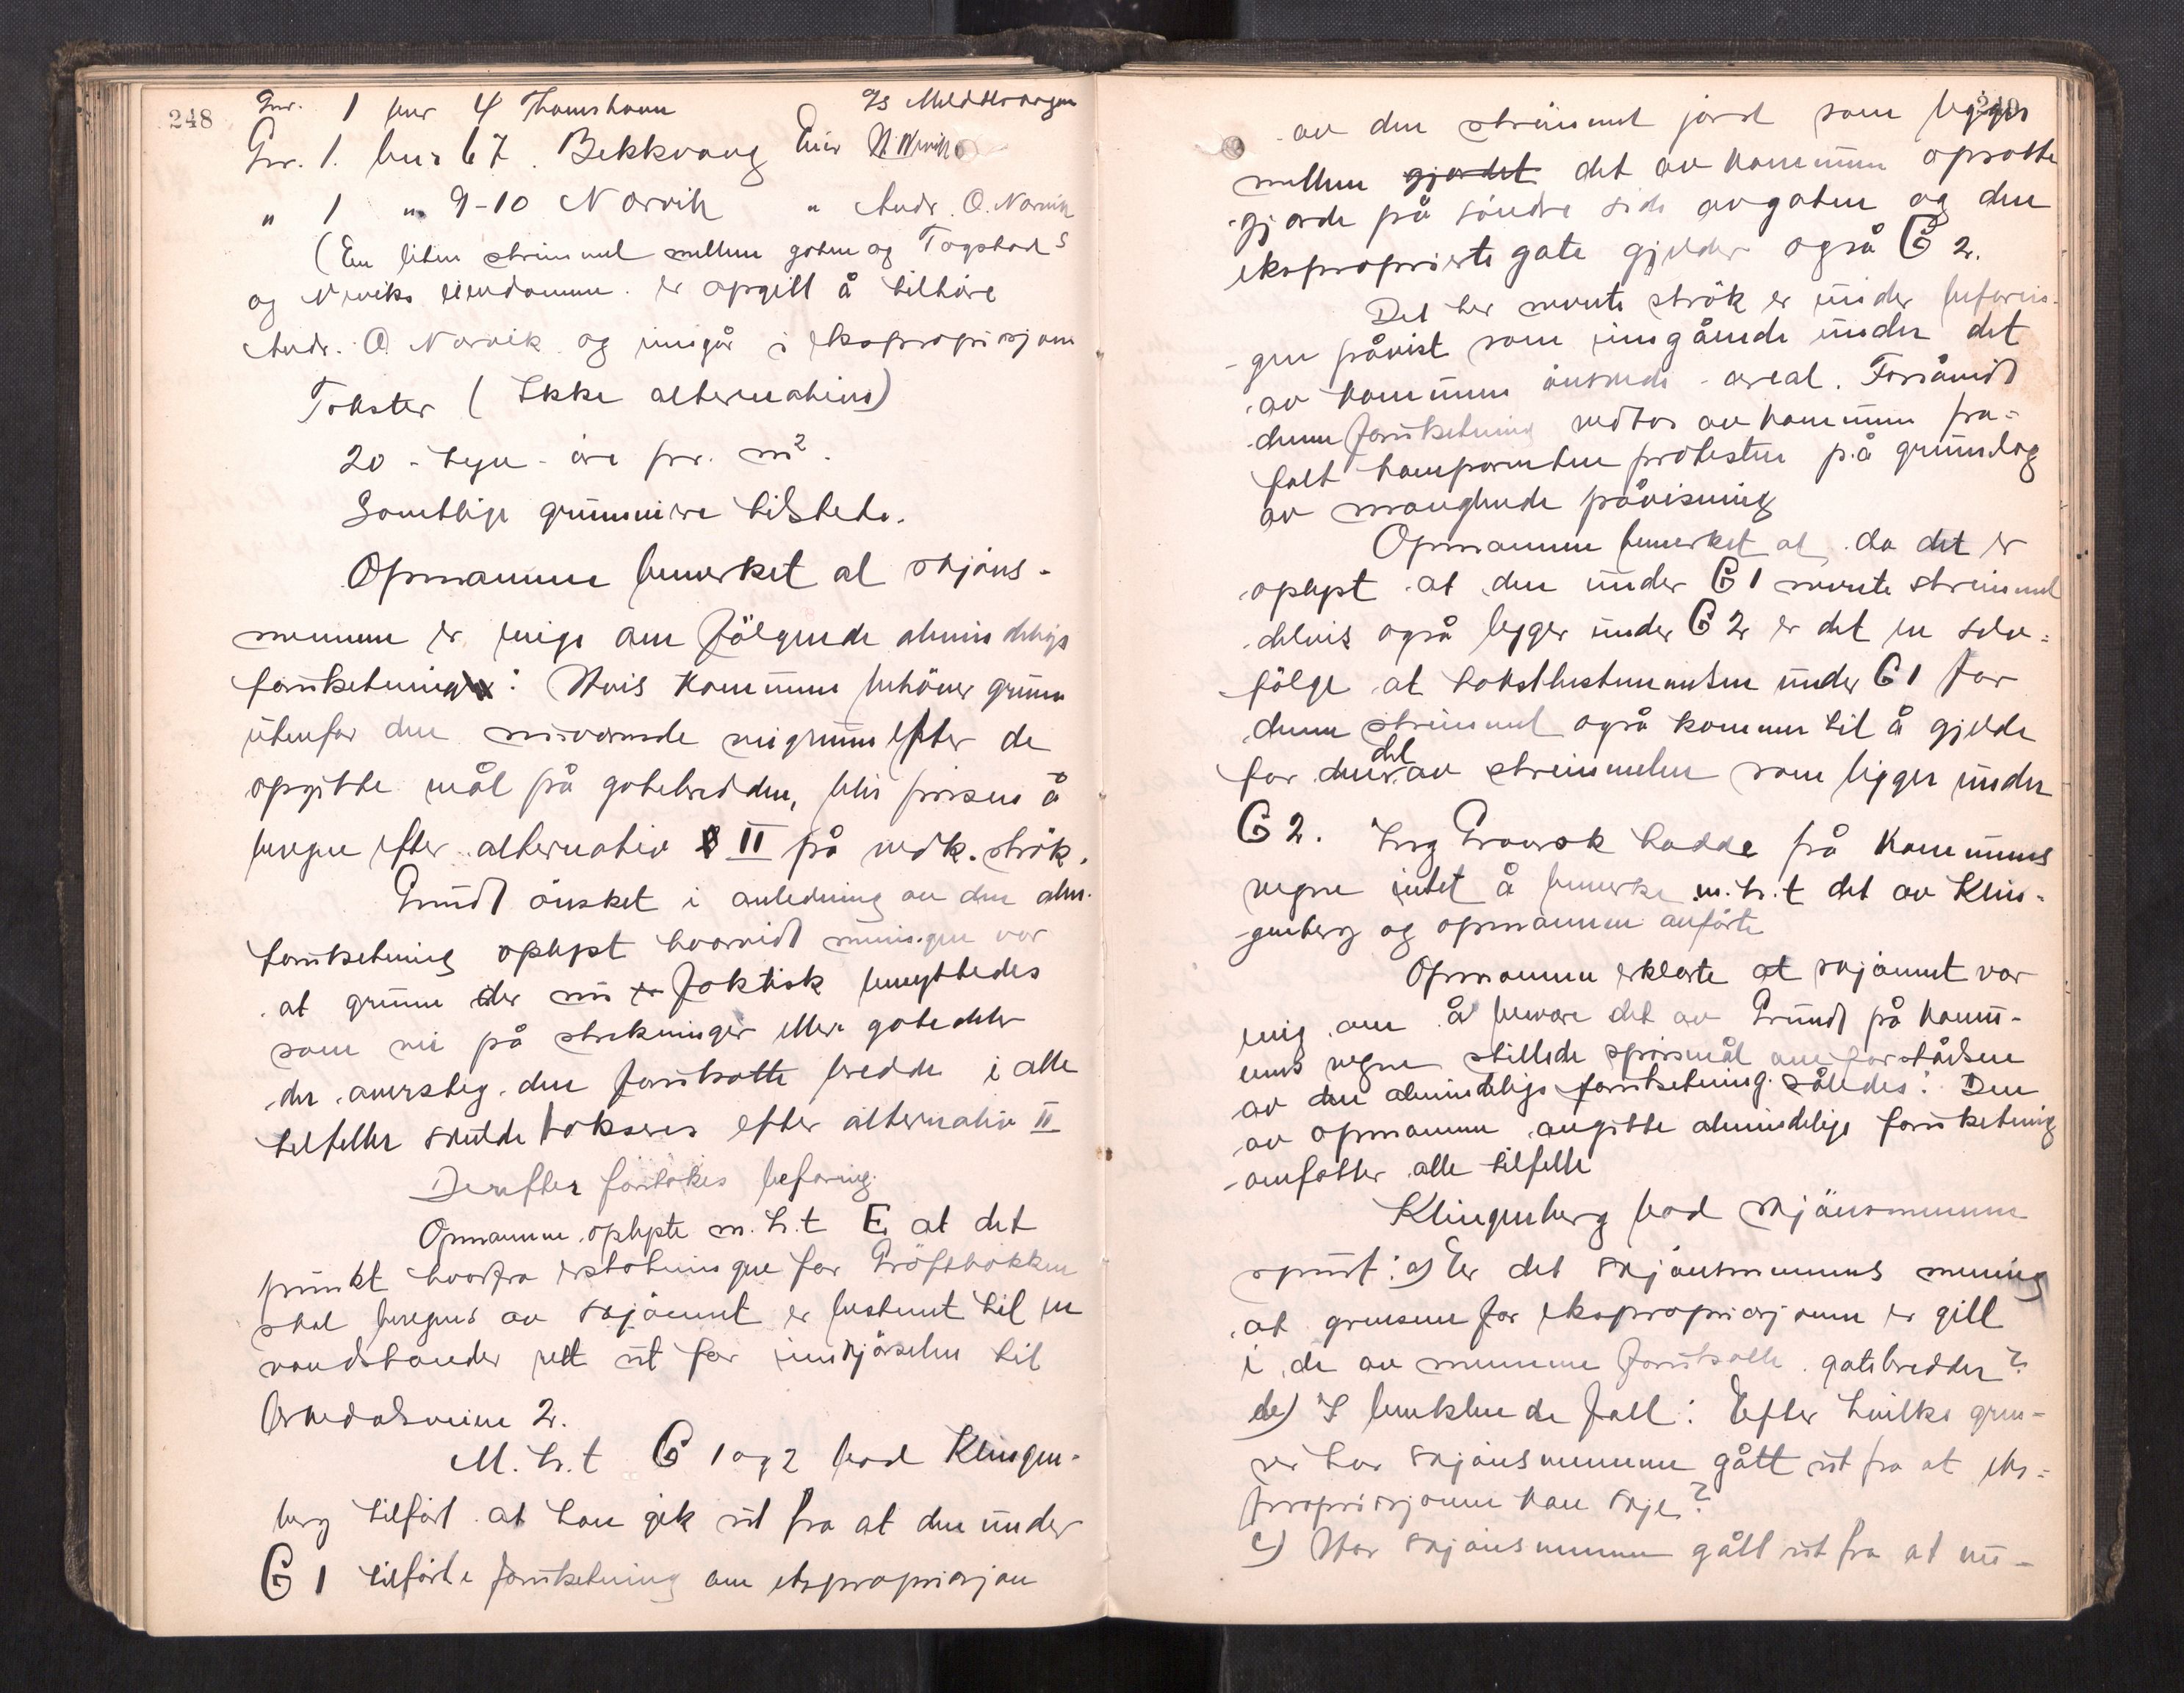 248
Gnr. 1 bnr 4 Thomshavn Is Meldalvangen
Gnr. 1. bnr 67. Bekkvang Eier N. Nervik
" 1 " 9-10 Norvik " Andr. O. Norvik
(En liten strimmel mellem gaten og Togstads
og Nerviks eiendomme er opgitt å tilhøre
Andr. O. Norvik og inngår i ekspropriasjonen
Takster (Ikke alternativer)
20 - tyve - øre pr. m².
Samtlige grunneiere tilstede.
Opmannen bemerket at skjøns-
mennene er enige om følgende almindelige
forutsetning: Hvis kommunen behøver grunn
utenfor den nuværende veigrunn efter de
opgitte mål på gatebredden, blir prisen å
beregne efter alternativ II på vedk. strøk.
Grundt ønsket i anledning av den alm.
forutsetning oplyst hvorvidt meningen var
at grunn der nu er faktisk benyttedes
som vei på strekninger eller gatedeler
der oversteg den forutsatte bredde i alle
tilfeller skulde takseres efter alternativ II
Derefter foretokes befaring.
Opmannen oplyste m.h.t E at det
punkt hvorfra erstatningen for Grøftebakken
skal beregnes av skjønnet er bestemt til en
vandstander rett ut for innkjørselen til
Orkedalsveien 2.
M.h.t G 1 og 2 bad Klingen-
berg tilført at han gik ut fra at den under
G 1 tilførte forutsetning om ekspropriasjon
249
av den strimmel jord som ligger
mellem gjerdet det av kommunen opsatte
gjerde på søndre side av gaten og den
eksproprierte gate gjelder også G 2.
Det her nevnte strøk er under befarin-
gen påvist som inngående under det
av kommunen ønskede areal. Forsåvidt
denne forutsetning vedtas av kommunen fra-
falt komparenten protesten på grunnlag
av manglende påvisning
Opmannen bemerket at da det er
oplyst at den under G 1 nevnte strimmel
delvis også ligger under G 2 er det en selv-
følge at takstbestemmelsen under G 1 for
denne strimmel også kommer til å gjelde
for den del av strimmelen som ligger under
G 2. Ing Gransk hadde på kommunens
vegne intet å bemerke m.h.t det av Klin-
genberg og opmannen anførte
Opmannen erklærte at skjønnet var
enig om å besvare det av Grundt på kommu-
nens vegne stillede spørsmål om forståelsen
av den almindelige forutsetning således: Den
av opmannen angitte almindelige forutsetning
omfatter alle tilfelle
Klingenberg bad skjønsmennene
spurt: a) Er det skjønsmennenes mening
at grensene for ekspropriasjonen er gitt
i de av mennene forutsatte gatebredder?
b) I benektende fall: Efter hvilke gren-
ser har skjønsmennene gått ut fra at eks-
propriasjonen kan skje?
c) Har skjønsmennene gått ut fra at nu-